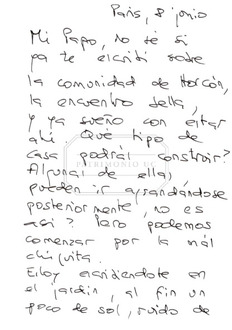 París, 8 junio
Mi Papo, no sé si
ya te escribí sobre
la comunidad de Horcón,
la encuentro bella,
y ya sueño con estar
ahí. Qué tipo de
casa podrás construir?
Algunas de ellas
pueden ir agrandándose
posteriormente, no es
así? Pero podemos
comenzar por la más
chiquita.
Estoy escribiéndote en
el jardín, al fin un
poco de sol, ruido de
PATRIMONIO UC